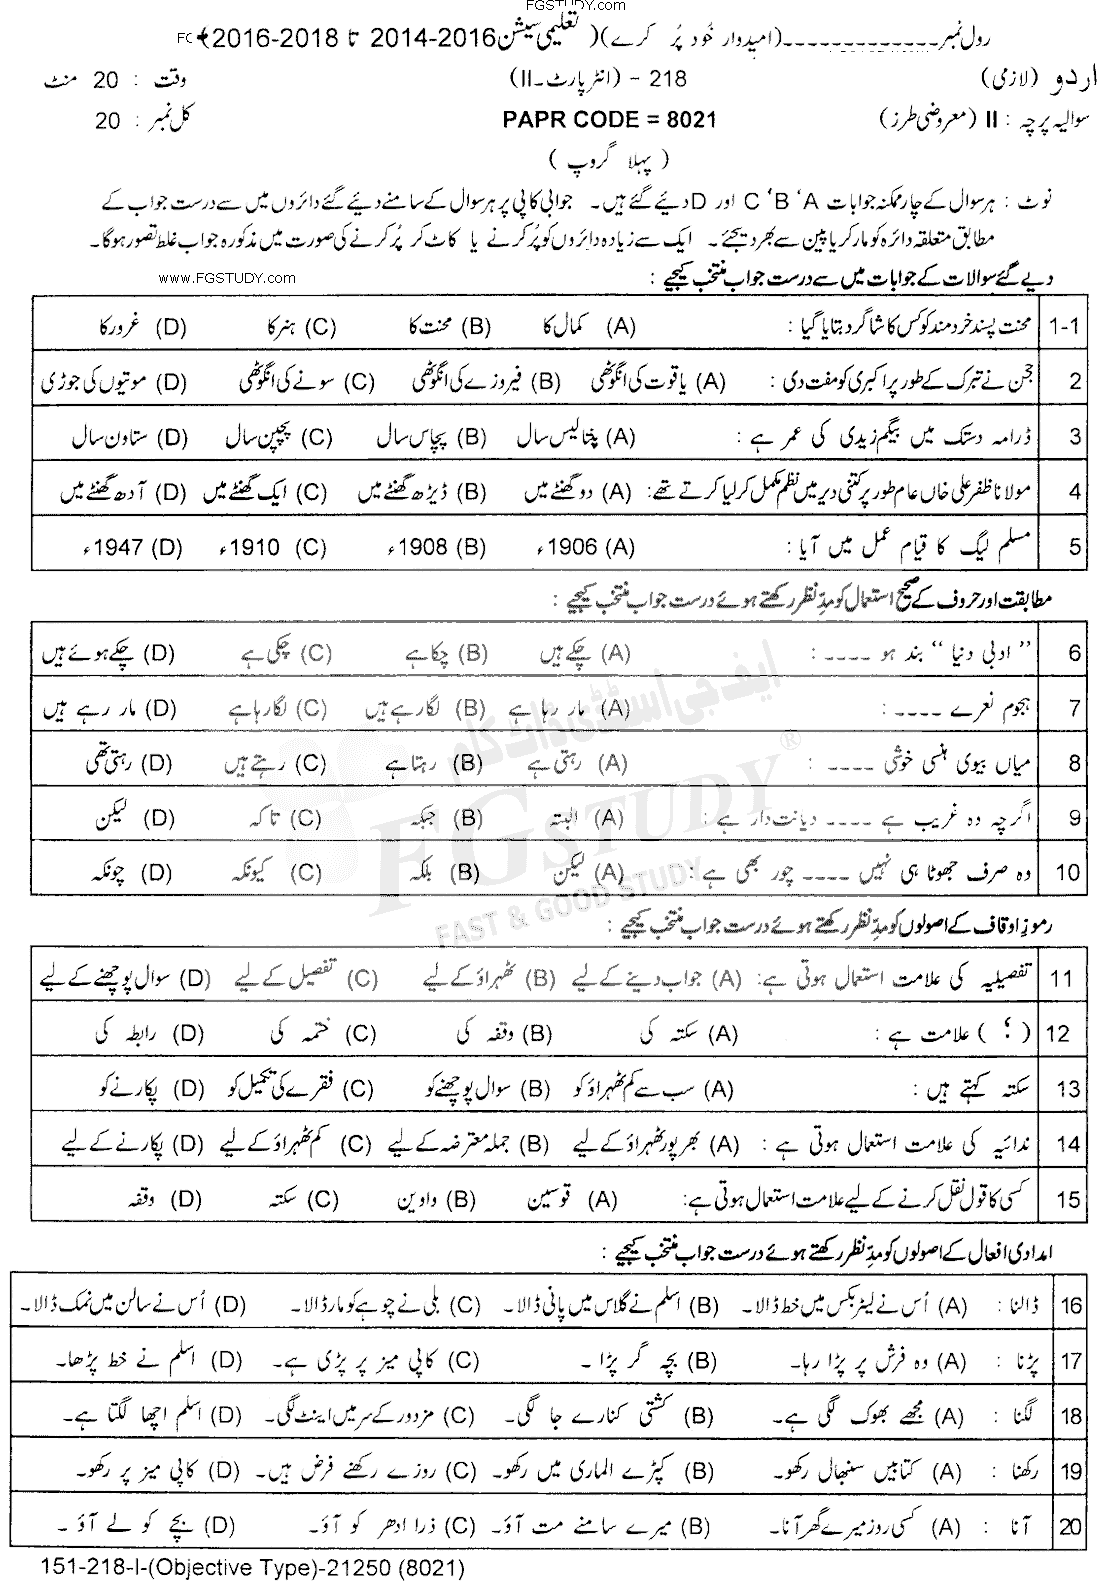 FGSTUDY.com
رول نمبر ـ ـ ـ ـ ـ ـ ـ ـ ـ ـ ـ ـ (امیدوار خُود پُر کرے)( تعلیمی سیشن 2016-2014 تا 2018-2016)
اردو (لازمی) 218 - (انٹر پارٹ ۔ II) وقت : 20 منٹ
سوالیہ پرچہ : II (معروضی طرز) PAPR CODE = 8021 کل نمبر : 20
( پہلا گروپ )
نوٹ : ہر سوال کے چار ممکنہ جوابات A‘ B‘ C اور D دیئے گئے ہیں۔ جوابی کاپی پر ہر سوال کے سامنے دیئے گئے دائروں میں سے درست جواب کے
مطابق متعلقہ دائرہ کو مارکر یا پین سے بھر دیجئے۔ ایک سے زیادہ دائروں کو پُر کرنے یا کاٹ کر پُر کرنے کی صورت میں مذکورہ جواب غلط تصور ہوگا۔
www.FGSTUDY.com
دیے گئے سوالات کے جوابات میں سے درست جواب منتخب کیجیے :
1-1 محنت پسند خردمند کو کس کا شاگرد بتایا گیا : (A) کمال کا (B) محنت کا (C) ہنر کا (D) غرور کا
2 حجن نے تبرک کے طور پر اکبری کو مفت دی : (A) یاقوت کی انگوٹھی (B) فیروزے کی انگوٹھی (C) سونے کی انگوٹھی (D) موتیوں کی جوڑی
3 ڈرامہ دستک میں بیگم زیدی کی عمر ہے : (A) پنتالیس سال (B) پچاس سال (C) پچپن سال (D) ستاون سال
4 مولانا ظفر علی خاں عام طور پر کتنی دیر میں نظم مکمل کر لیا کرتے تھے: (A) دو گھنٹے میں (B) ڈیڑھ گھنٹے میں (C) ایک گھنٹے میں (D) آدھ گھنٹے میں
5 مسلم لیگ کا قیام عمل میں آیا : (A) 1906ء (B) 1908ء (C) 1910ء (D) 1947ء
مطابقت اور حروف کے صحیح استعمال کو مدِّنظر رکھتے ہوئے درست جواب منتخب کیجیے :
6 ” ادبی دنیا “ بند ہو ۔۔۔۔ : (A) چکے ہیں (B) چکا ہے (C) چکی ہے (D) چکے ہوئے ہیں
7 ہجوم نعرے ۔۔۔۔ : (A) مار رہا ہے (B) لگا رہے ہیں (C) لگا رہا ہے (D) مار رہے ہیں
8 میاں بیوی ہنسی خوشی ۔۔۔۔ : (A) رہتی ہے (B) رہتا ہے (C) رہتے ہیں (D) رہتی تھی
9 اگرچہ وہ غریب ہے ۔۔۔۔ دیانت دار ہے : (A) البتہ (B) جبکہ (C) تاکہ (D) لیکن
10 وہ صرف جھوٹا ہی نہیں ۔۔۔۔ چور بھی ہے : (A) لیکن (B) بلکہ (C) کیونکہ (D) چونکہ
ایف جی اسٹڈی ڈاٹ کام
FGSTUDY ®
FAST & GOOD STUDY
رموزِ اوقاف کے اصولوں کو مدِّنظر رکھتے ہوئے درست جواب منتخب کیجیے :
11 تفصیلیہ کی علامت استعمال ہوتی ہے: (A) جواب دینے کے لیے (B) ٹھہراؤ کے لیے (C) تفصیل کے لیے (D) سوال پوچھنے کے لیے
12 ( ؛ ) علامت ہے : (A) سکتہ کی (B) وقفہ کی (C) ختمہ کی (D) رابطہ کی
13 سکتہ کہتے ہیں : (A) سب سے کم ٹھہراؤ کو (B) سوال پوچھنے کو (C) فقرے کی تکمیل کو (D) پکارنے کو
14 ندائیہ کی علامت استعمال ہوتی ہے : (A) بھرپور ٹھہراؤ کے لیے (B) جملہ معترضہ کے لیے (C) کم ٹھہراؤ کے لیے (D) پکارنے کے لیے
15 کسی کا قول نقل کرنے کے لیے علامت استعمال ہوتی ہے: (A) قوسین (B) واوین (C) سکتہ (D) وقفہ
امدادی افعال کے اصولوں کو مدِّنظر رکھتے ہوئے درست جواب منتخب کیجیے :
16 ڈالنا : (A) اُس نے لیٹر بکس میں خط ڈالا۔ (B) اسلم نے گلاس میں پانی ڈالا۔ (C) بلی نے چوہے کو مار ڈالا۔ (D) اُس نے سالن میں نمک ڈالا۔
17 پڑنا : (A) وہ فرش پر پڑا رہا۔ (B) بچہ گر پڑا ۔ (C) کاپی میز پر پڑی ہے۔ (D) اسلم نے خط پڑھا۔
18 لگنا : (A) مجھے بھوک لگی ہے۔ (B) کشتی کنارے جا لگی۔ (C) مزدور کے سر میں اینٹ لگی۔ (D) اسلم اچھا لگتا ہے۔
19 رکھنا : (A) کتابیں سنبھال رکھو۔ (B) کپڑے الماری میں رکھو۔ (C) روزے رکھنے فرض ہیں۔ (D) کاپی میز پر رکھو۔
20 آنا : (A) کسی روز میرے گھر آنا۔ (B) میرے سامنے مت آؤ۔ (C) ذرا ادھر کو آؤ۔ (D) بچے کو لے آؤ ۔
151-218-I-(Objective Type)-21250 (8021)